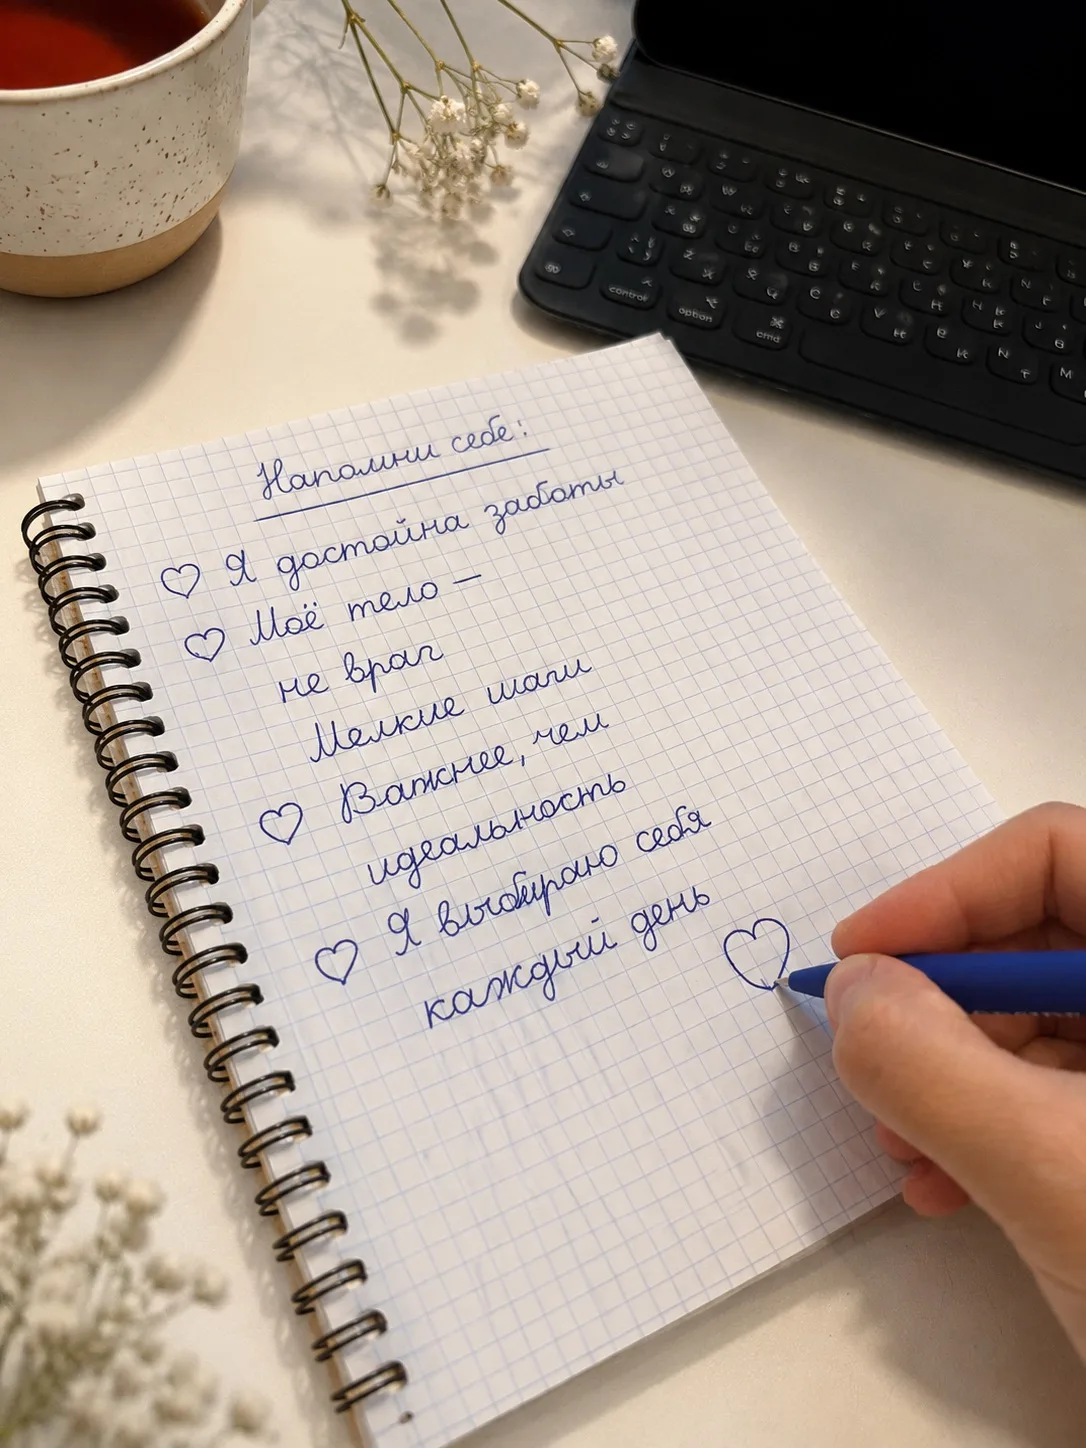 Напомни себе:
Я достойна заботы
Моё тело —
не враг
Мелкие шаги
Важнее, чем
идеальность
Я выбираю себя
каждый день
control
option
cmd